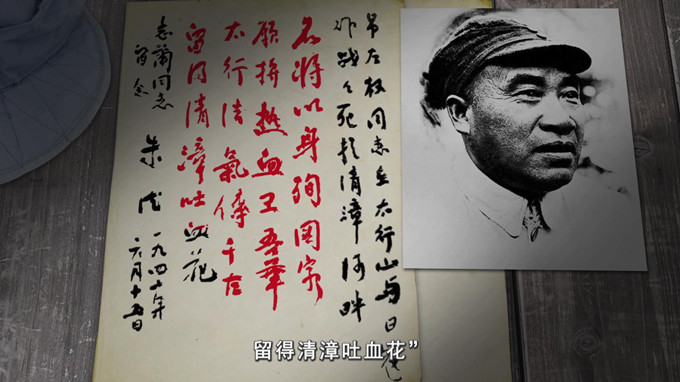 吊左权同志在太行山与日寇
作战々死於清漳河畔
名将以身殉國家
願拚热血卫吾華
太行浩氣傳千古
留得清漳吐血花
志蘭同志
留念
朱德
一九四十年
六月十五日
留得清漳吐血花”